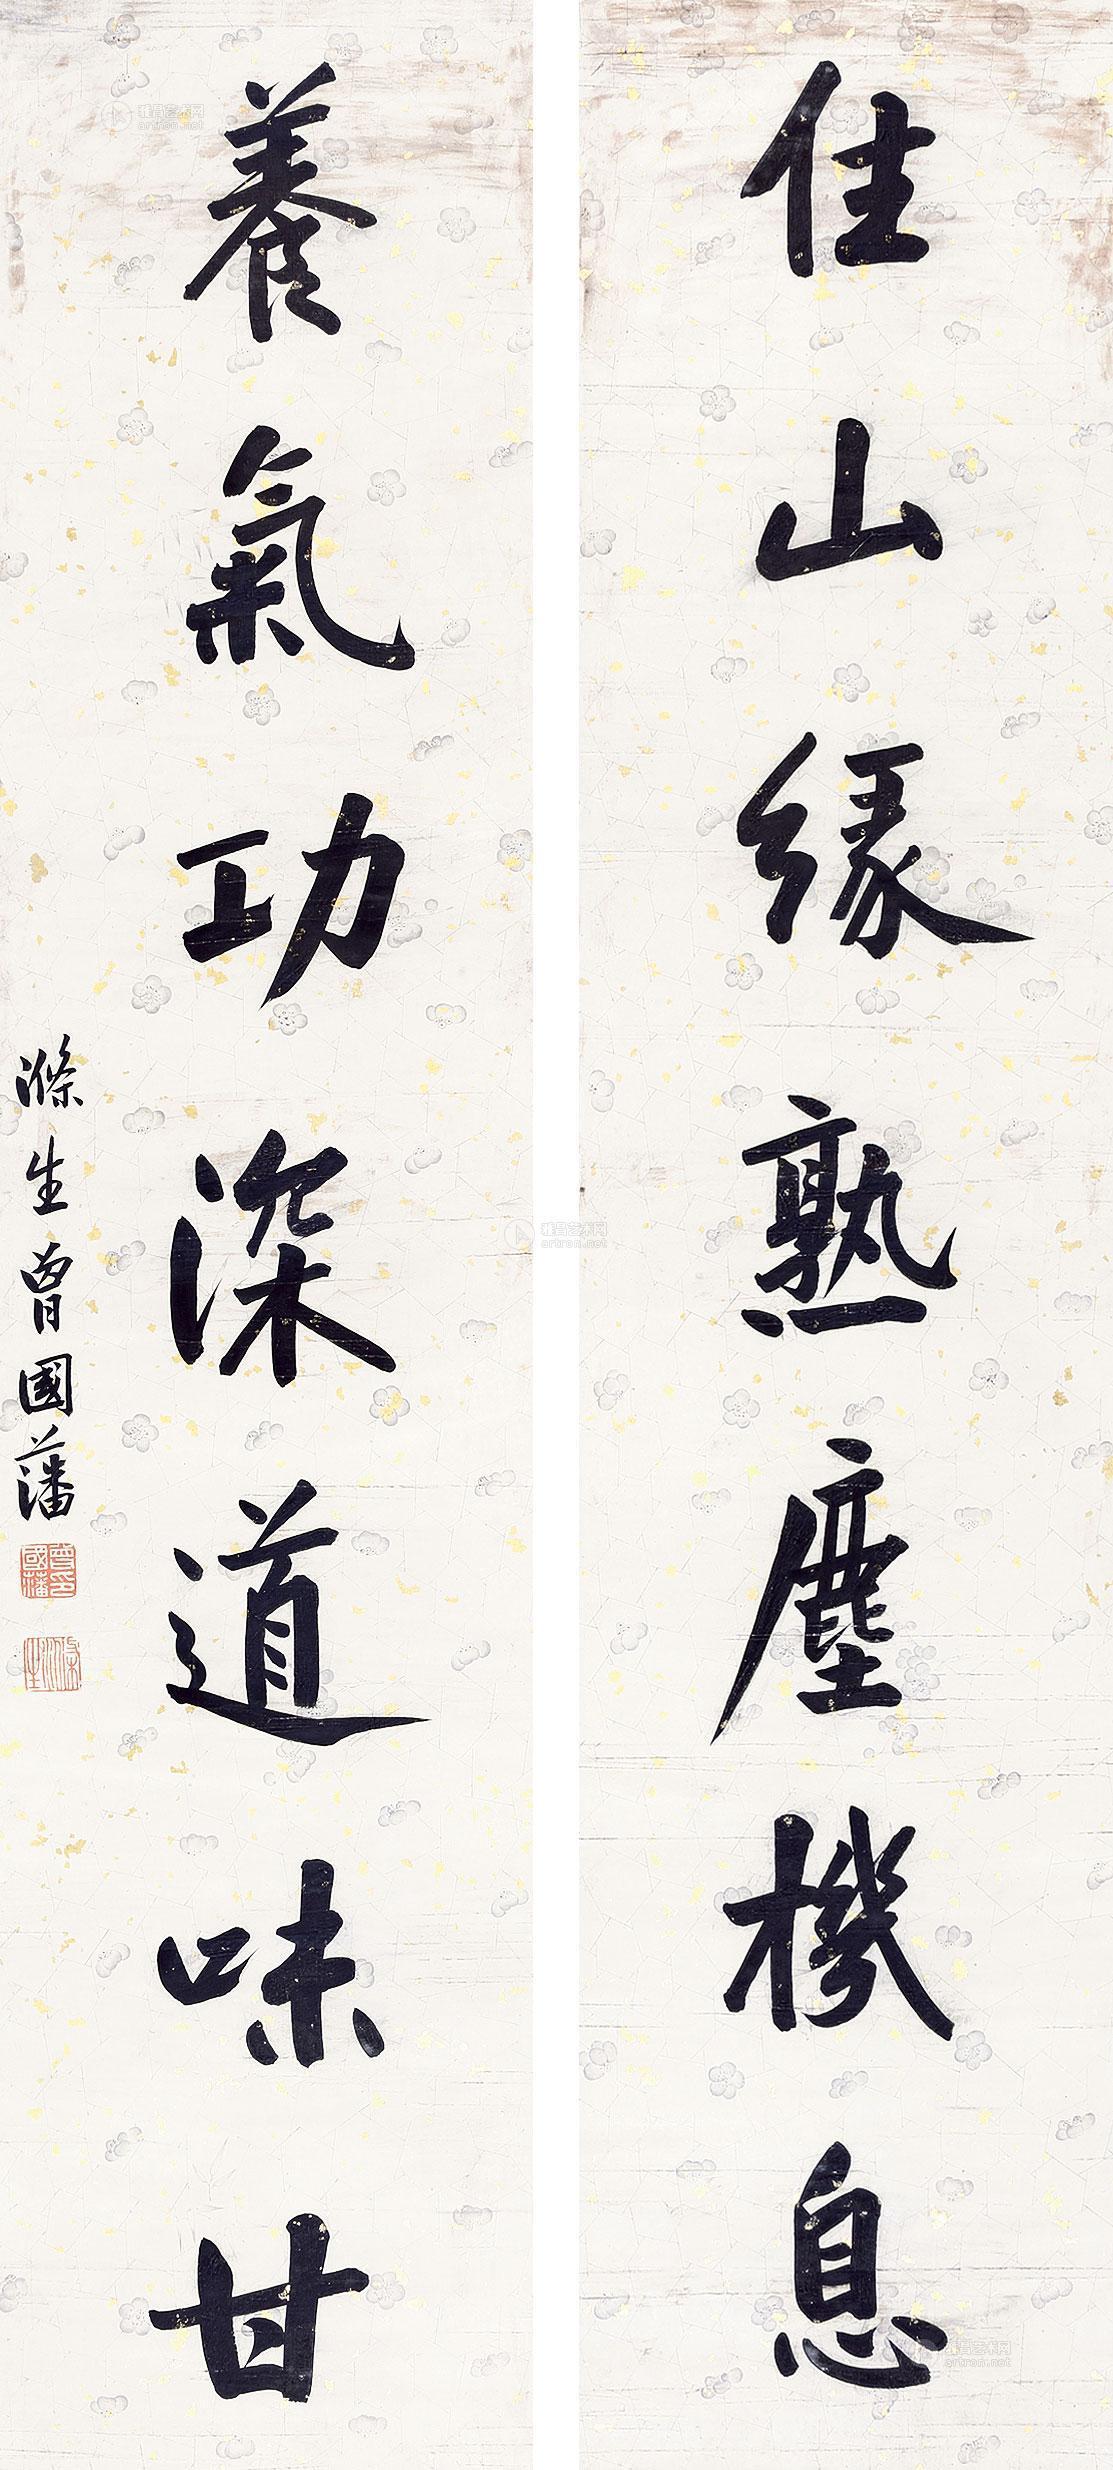 住山緣熟塵機息
養氣功深道味甘
滌生曾國藩
曾國藩印
滌生
雅昌艺术网
artron.net
雅昌艺术网
artron.net
雅昌艺术网
artron.net